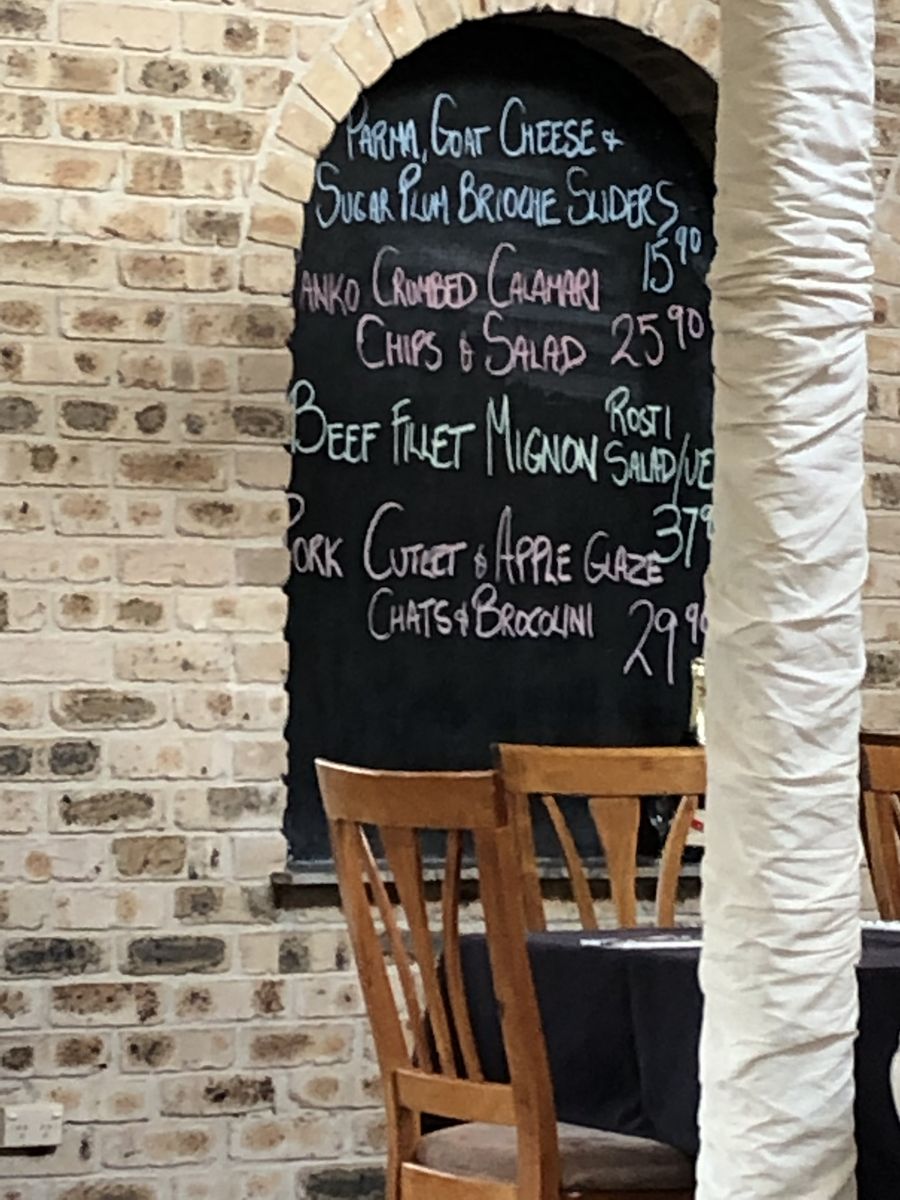 PARMA, GOAT CHEESE &
SUGAR PLUM BRIOCHE SLIDERS
15 90
ANKO CRUMBED CALAMARI
CHIPS & SALAD 25 90
BEEF FILLET MIGNON ROSTI
SALAD/VE
379
PORK CUTLET & APPLE GLAZE
CHATS & BROCOLINI 29 90